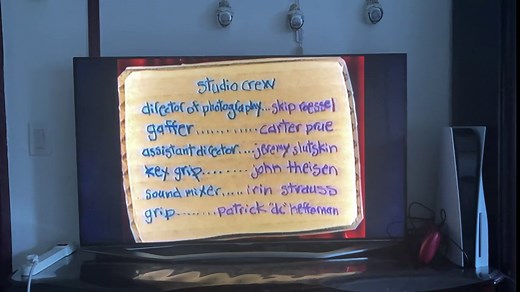 studio crew
director of photography...skip roessel
gaffer...........carter prue
assistant director....jeremy slutskin
key grip.........john theisen
sound mixer.....irin strauss
grip........patrick "dc" heffernan